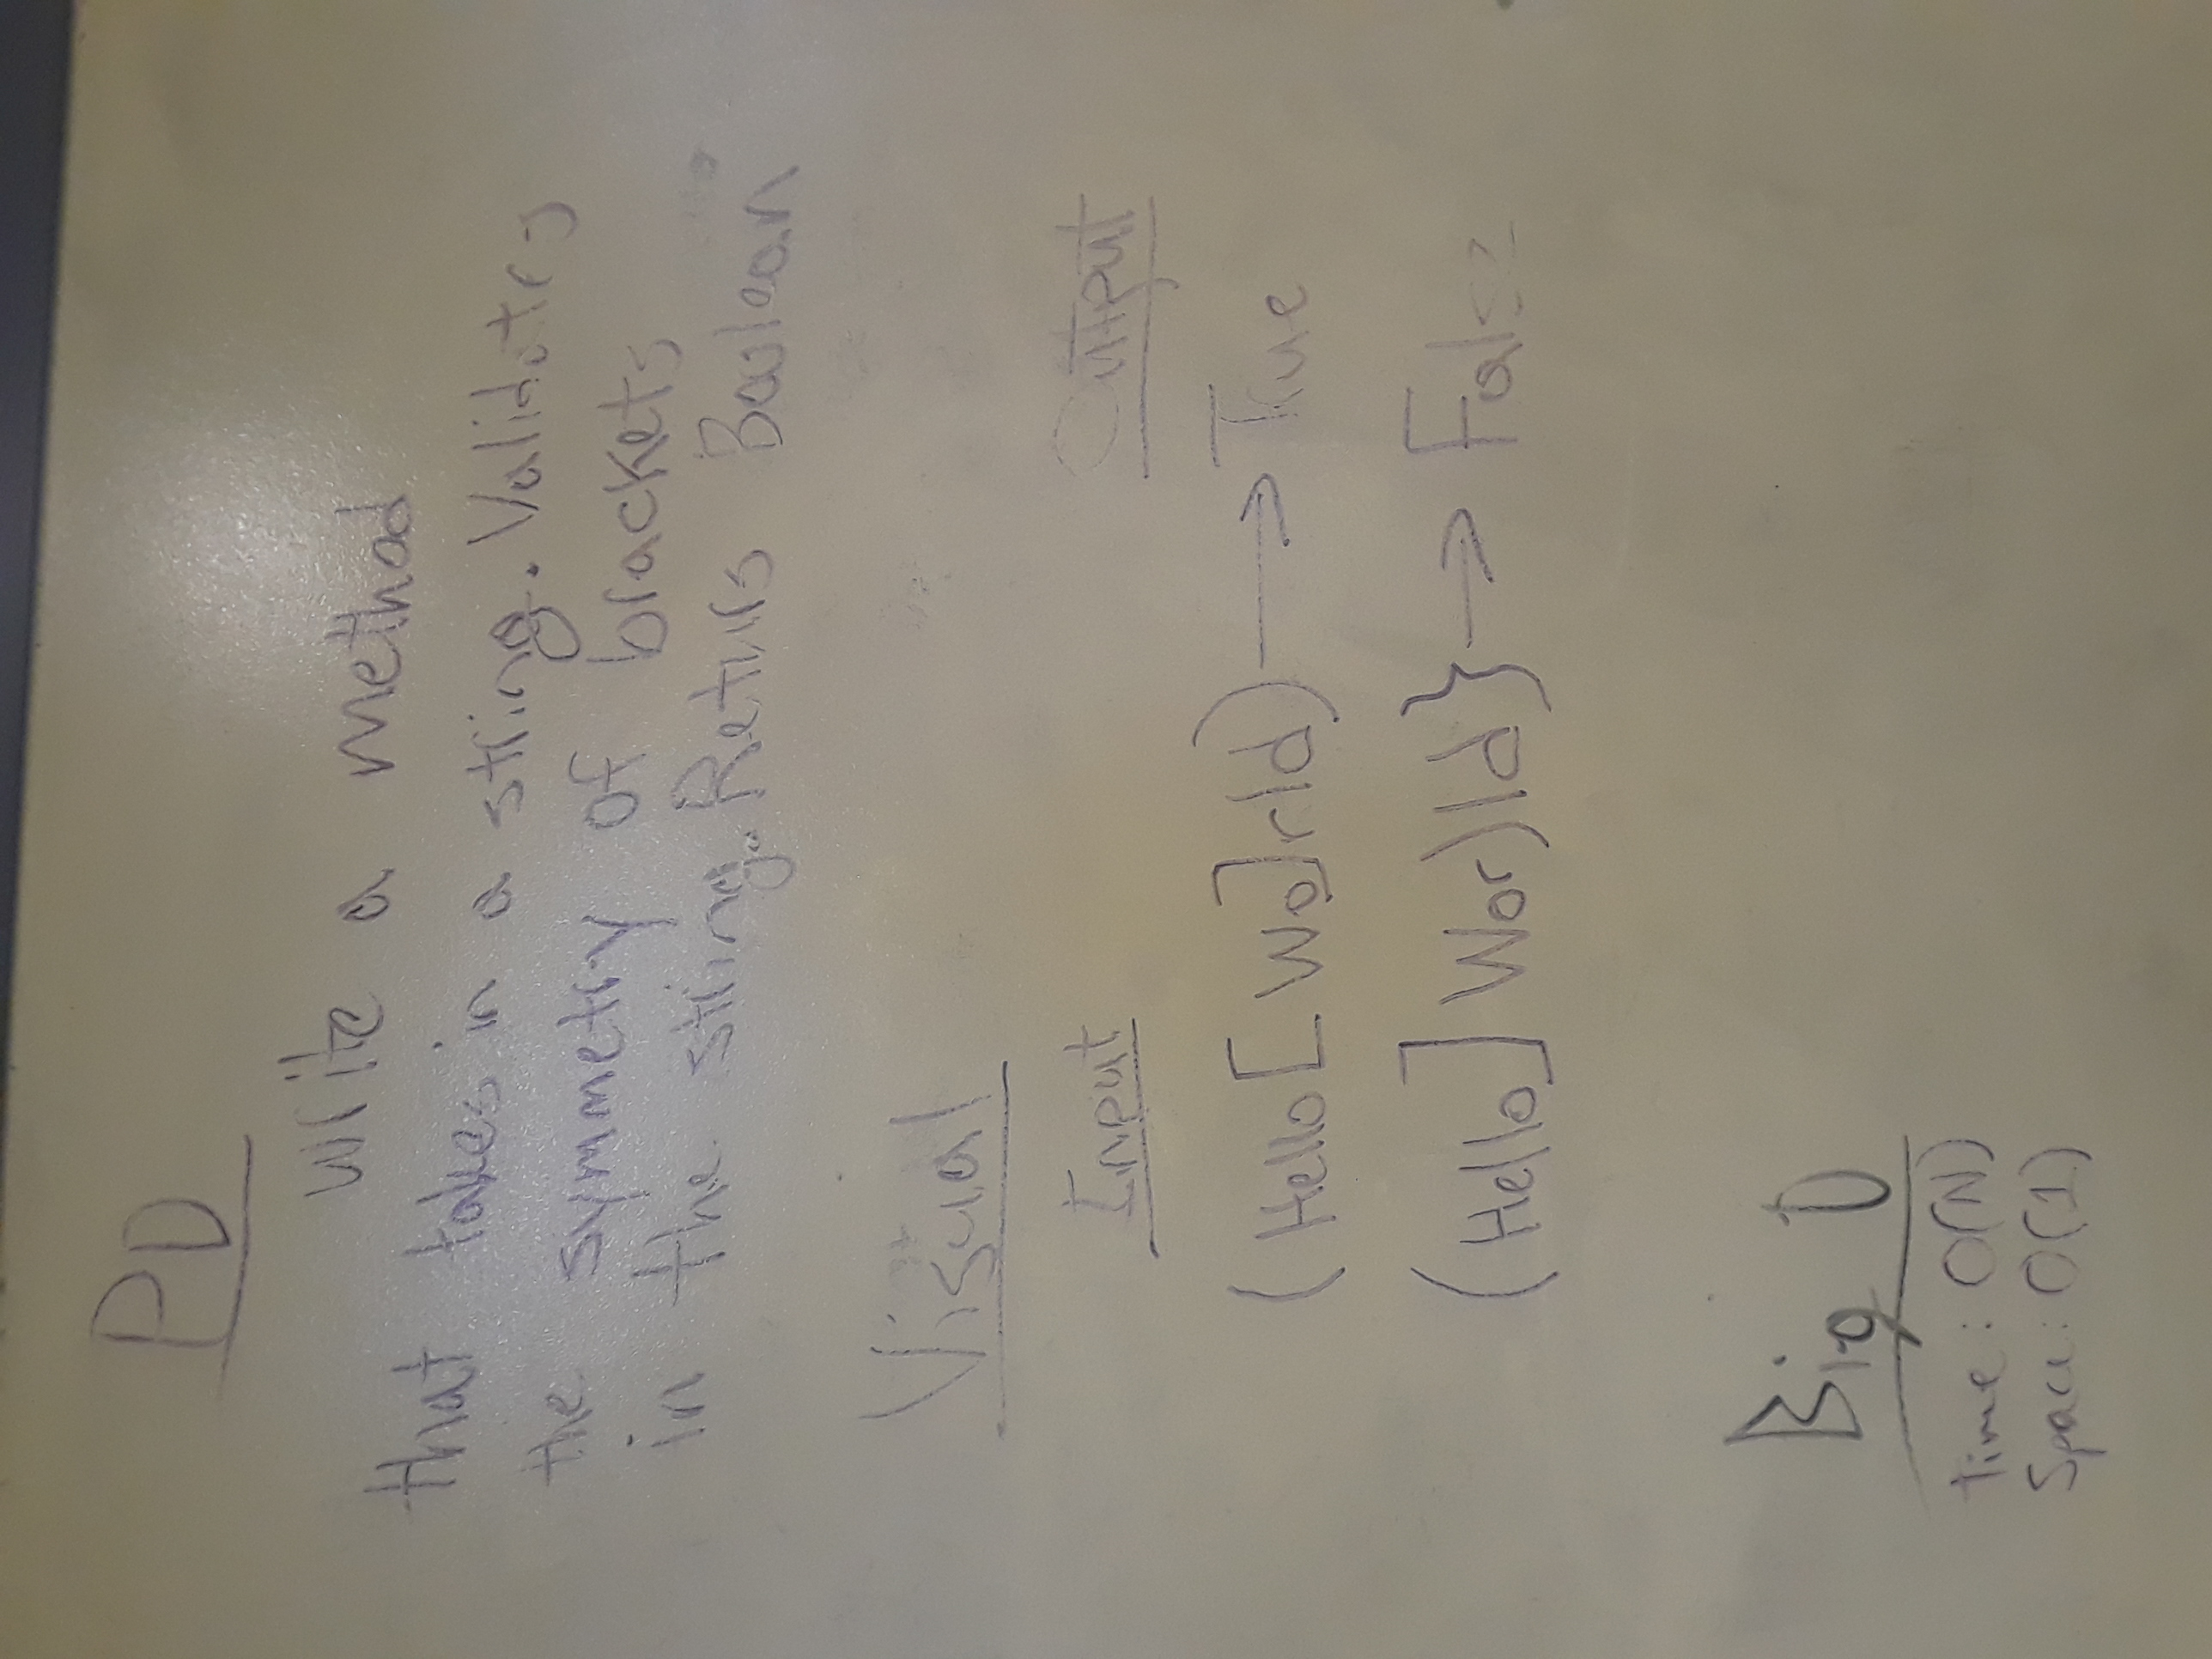 PD
write a method
that takes in a string. Validates
the symmetry of brackets
in the string. Returs Boolean
Visual
Input Output
(Hello[Wo]rld) → True
(Hello]Wor)ld} → False
Big O
Time: O(N)
Space: O(1)